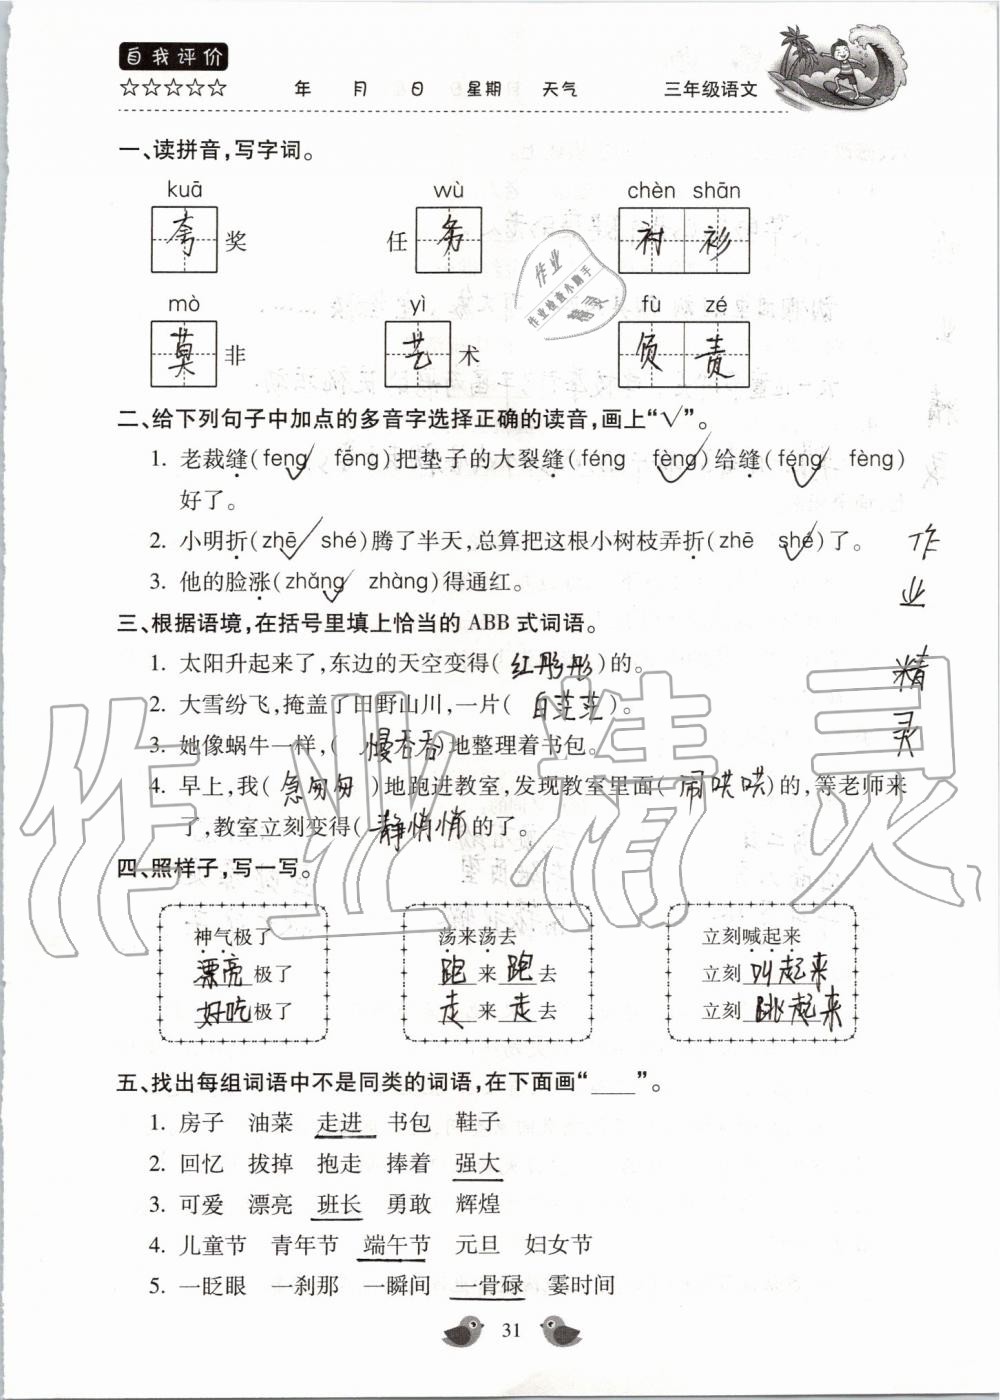 自我评价
☆☆☆☆☆ 年 月 日 星期 天气 三年级语文
一、读拼音，写字词。
kuā wù chèn shān
夸奖 任务 衬衫
mò yì fù zé
莫非 艺术 负责
二、给下列句子中加点的多音字选择正确的读音，画上“√”。
1. 老裁缝(feng√ fēng)把垫子的大裂缝(féng fèng√)给缝(féng√ fèng)
好了。
2. 小明折(zhē√ shé)腾了半天，总算把这根小树枝弄折(zhē shé√)了。
3. 他的脸涨(zhǎng√ zhàng)得通红。
三、根据语境，在括号里填上恰当的 ABB 式词语。
1. 太阳升起来了，东边的天空变得(红彤彤)的。
2. 大雪纷飞，掩盖了田野山川，一片(白茫茫)。
3. 她像蜗牛一样，(慢吞吞)地整理着书包。
4. 早上，我(急匆匆)地跑进教室，发现教室里面(闹哄哄)的，等老师来
了，教室立刻变得(静悄悄)的了。
四、照样子，写一写。
神气极了 荡来荡去 立刻喊起来
漂亮极了 跑来跑去 立刻叫起来
好吃极了 走来走去 立刻跳起来
五、找出每组词语中不是同类的词语，在下面画“____”。
1. 房子 油菜 走进 书包 鞋子
2. 回忆 拔掉 抱走 捧着 强大
3. 可爱 漂亮 班长 勇敢 辉煌
4. 儿童节 青年节 端午节 元旦 妇女节
5. 一眨眼 一刹那 一瞬间 一骨碌 霎时间
31
作业
作业检查小助手
精灵
作业精灵
作业精灵